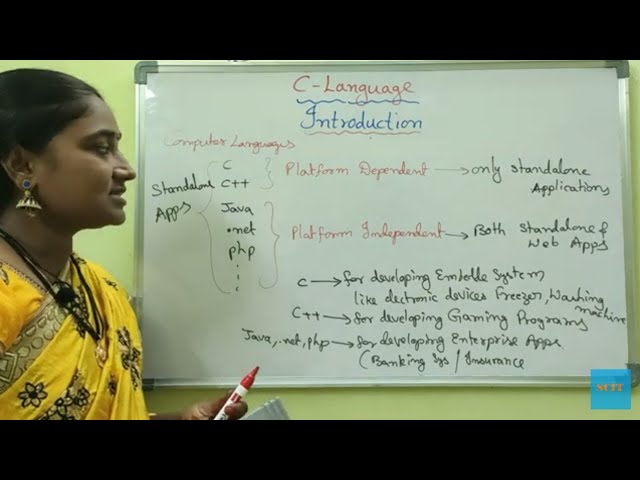 C-Language
Introduction
Computer Languages
C
C++
Platform Dependent → only standalone Applications
Standalone Apps
Java
.net
php
Platform Independent → Both standalone & Web Apps
C → for developing Embdde System
like electronic devices Freezer, Washing machine
C++ → for developing Gaming Programs
Java, .net, php → for developing Enterprise Apps
(Banking Sys / Insurance
SCIT